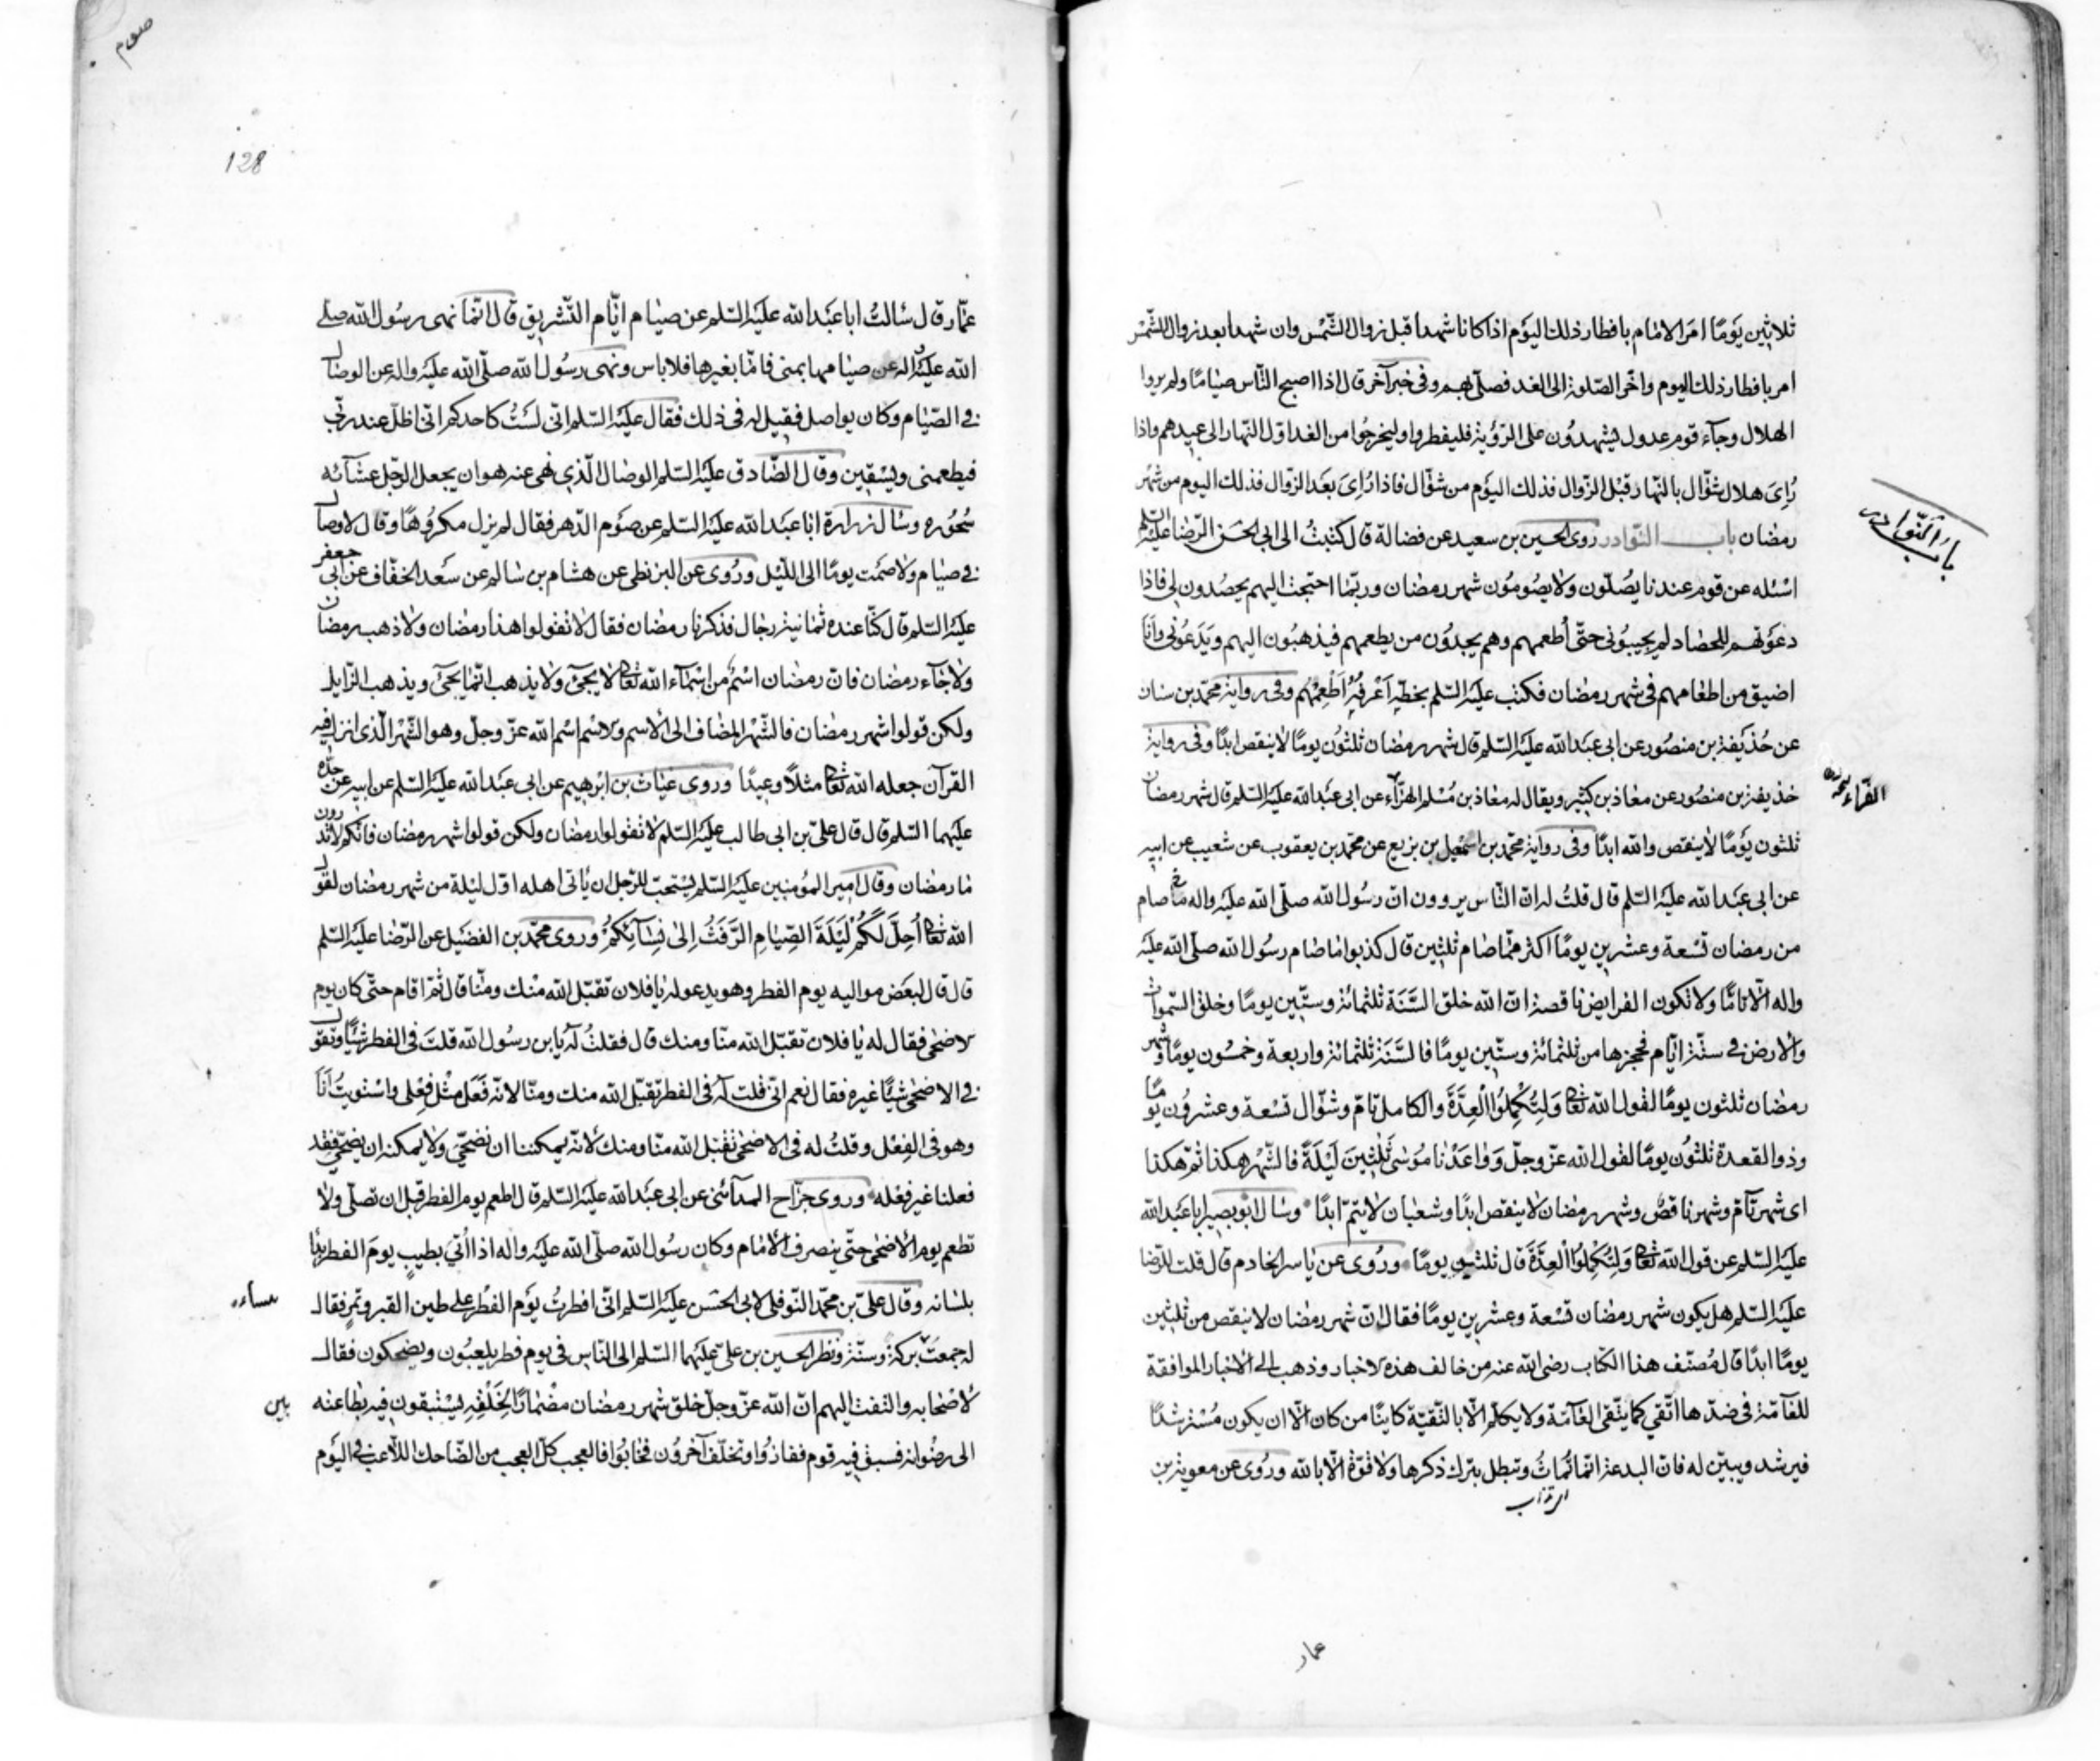 باب النوادر
ثلاثين يومًا امر الامام بافطار ذلك اليوم اذا كانا شهدا قبل زوال الشمس وان شهدا بعد زوال الشمس
امر بافطار ذلك اليوم واخّر الصّلوة الى الغد فصلّى بهم وفى خبر آخر قال اذا اصبح النّاس صيامًا ولم يروا
الهلال وجآء قوم عدول يشهدون على الرّؤية فليفطروا وليخرجوا من الغد اوّل النّهار الى عيدهم واذا
رُاىَ هلال شوّال بالنّهار قبل الزّوال فذلك اليوم من شوّال فاذا رُاىَ بعد الزّوال فذلك اليوم من شهر
رمضان باب النّوادر روى الحسين بن سعيد عن فضالة قال كتبتُ الى ابى الحسن الرّضا عليه السّلم
اسئله عن قوم عندنا يُصلّون ولا يصُومُون شهر رمضان وربّما احتجت اليهم يحصُدون لى فاذا
دعوتهم للحصاد لم يجيبُونى حتّى أُطعمهم وهم يجدُون من يطعمهم فيذهبُون اليهم ويَدَعُونى وانا
اضيق من اطعامهم فى شهر رمضان فكتب عليه السّلم بخطّه اَعْرِفُهُ أَطْعِمْهُم وفى رواية محمّد بن سنان
عن حُذيفة بن منصُور عن ابى عبد الله عليه السّلم قال شهر رمضان ثلثُون يومًا لا ينقص ابدًا وفى رواية
حذيفة بن منصُور عن معاذ بن كثير ويقال له معاذ بن مُسْلم الهرّاء عن ابى عبد الله عليه السّلم قال شهر رمضان
الفرّاء
ثلثون يومًا لا ينقص والله ابدًا وفى رواية محمّد بن اسمٰعيل بن بزيع عن محمّد بن يعقوب عن شعيب عن ابيه
عن ابى عبد الله عليه السّلم قال قلتُ له انّ النّاس يروون انّ رسُول الله صلّى الله عليه واله ما صام
من رمضان تسْعة وعشرين يومًا اكثر ممّا صام ثلثين قال كذبوا ما صام رسُول الله صلّى الله عليه
واله الّا تامًّا ولا تكون الفرايض ناقصة انّ الله خلق السَّنَة ثلثمائة وستّين يومًا وخلق السّموات
والارض فى ستّة ايّام فحجزها من ثلثمائة وستّين يومًا فالسَّنَة ثلثمائة واربعة وخمسُون يومًا وشهر
رمضان ثلثون يومًا لقول الله تعٰ وَلِتُكْمِلُوا الْعِدَّةَ والكامل تامّ وشوّال تسْعة وعشرُون يومًا
وذو القعدة ثلثُون يومًا لقول الله عزّ وجلّ وَوَاعَدْنَا مُوسٰى ثَلٰثِينَ لَيْلَةً فالشّهر هكذا ثمّ هكذا
اى شهر تآمّ وشهر ناقصٌ وشهر رمضان لا ينقص ابدًا وشعبان لا يتمّ ابدًا وسال ابُو بصير ابا عبد الله
عليه السّلم عن قول الله تعٰ وَلِتُكْمِلُوا الْعِدَّةَ قال ثلثين يومًا ورُوى عن ياسر الخادم قال قلت للرّضا
عليه السّلم هل يكون شهر رمضان تسْعة وعشرين يومًا فقال انّ شهر رمضان لا ينقص من ثلثين
يومًا ابدًا قال مُصنّف هذا الكتاب رضى الله عنه من خالف هذه الاخبار وذهب الى الاخبار الموافقة
للعآمّة فى ضدّها اتّقى كما يتّقى العآمّة ولا يكلّم الّا بالتّقيّة كاينًا من كان الّا ان يكون مُسْترشدًا
فيرشد ويبيّن له فانّ البدعة انّما تُماثُ وتبطل بترك ذكرها ولا قوّة الّا بالله ورُوى عن معوية بن
عمار
صوم
128
عمّار قال سالتُ ابا عبد الله عليه السّلم عن صيام ايّام التّشريق قال انّما نهى رسُول الله صلى
الله عليه واله عن صيامها بمنى فامّا بغيرها فلا باس ونهى رسُول الله صلّى الله عليه واله عن الوصال
فى الصّيام وكان يواصل فقيل له فى ذلك فقال عليه السّلم انّى لسْتُ كاحدكم انّى اظلّ عند ربّى
فيطعمنى ويسْقين وقال الصّادق عليه السّلم الوصال الّذى نهى عنه هو ان يجعل الرّجل عشآئه
سُحُوره وسال زرارة ابا عبد الله عليه السّلم عن صوم الدّهر فقال لم يزل مكرُوهًا وقال لا وصال
فى صيام ولا صمت يومًا الى اللّيل ورُوى عن البزنطى عن هشام بن سالم عن سعد الخفّاف عن ابى جعفر
عليه السّلم قال كنّا عنده ثمانية رجال فذكرنا رمضان فقال لا تقولوا هذا رمضان ولا ذهب رمضان
ولا جآء رمضان فانّ رمضان اسْم من اسْمآء الله تعٰ لا يجئ ولا يذهب انّما يجئ ويذهب الزّايل
ولكن قولوا شهر رمضان فالشّهْر المضاف الى الاسم والاسم اسْم الله عزّ وجلّ وهو الشّهْر الّذى انزل فيه
القرآن جعله الله تعٰ مثلًا وعيدًا وروى غياث بن ابرهيم عن ابى عبد الله عليه السّلم عن ابيه عن جدّه
عليهما السّلم قال قال علىّ بن ابى طالب عليه السّلم لا تقولوا رمضان ولكن قولوا شهر رمضان فانّكم لا تدرون
ما رمضان وقال امير المؤمنين عليه السّلم يسْتحبّ للرّجل ان ياتى اهله اوّل ليلة من شهر رمضان لقول
الله تعٰ اُحِلَّ لَكُمْ لَيْلَةَ الصِّيٰامِ الرَّفَثُ اِلٰى نِسٰآئِكُمْ وروى محمّد بن الفضيل عن الرّضا عليه السّلم
قال قال لبعض مواليه يوم الفطر وهو يدعو له يا فلان تقبّل الله منك ومنّا قال ثمّ اقام حتّى كان يوم
الاضحى فقال له يا فلان تقبّل الله منّا ومنك قال فقلتُ له يا بن رسُول الله قلتَ فى الفطر شيئًا وتقول
فى الاضحى شيئًا غيره فقال نعم انّى قلت له فى الفطر تقبّل الله منك ومنّا لانّه فَعَل مثْل فِعْلى واسْتويتُ اَنَا
وهو فى الفِعْل وقلتُ له فى الاضحى تقبّل الله منّا ومنك لانّه يمكننا ان نضحّى ولا يمكنه ان يضحّى فقد
فعلنا غير فعْله وروى جرّاح المدآئنى عن ابى عبد الله عليه السّلم قال اطعم يوم الفطر قبل ان تصلّى ولا
تطعم يوم الاضحى حتّى ينصرف الامام وكان رسُول الله صلّى الله عليه واله اذا اُتى بطيبٍ يومَ الفطر بدأ
بلسانه وقال علىّ بن محمّد النّوفلى لابى الحسَن عليه السّلم انّى افطرتُ يوم الفطر على طين القبر وتمر فقال
بنسائه
له جمعتَ بركة وسنّة ونظر الحسين بن علىّ عليهما السّلم الى النّاس فى يوم فطر يلعبُون ويضحكون فقال
لاصحابه والتفت اليهم انّ الله عزّ وجلّ خلق شهر رمضان مضْمارًا لِخَلْقِهِ ليسْتبقون فيه بطاعته
الى رضْوانه فسبق فيه قوم ففازُوا وتخلّف آخرُون فخابُوا فالعجب كلّ العجب من الضّاحك اللّاعب فى اليَوم